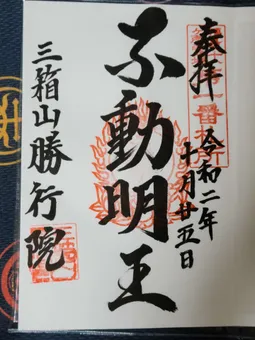 奉拝
令和二年
十月廿五日
不動明王
三箱山勝行院